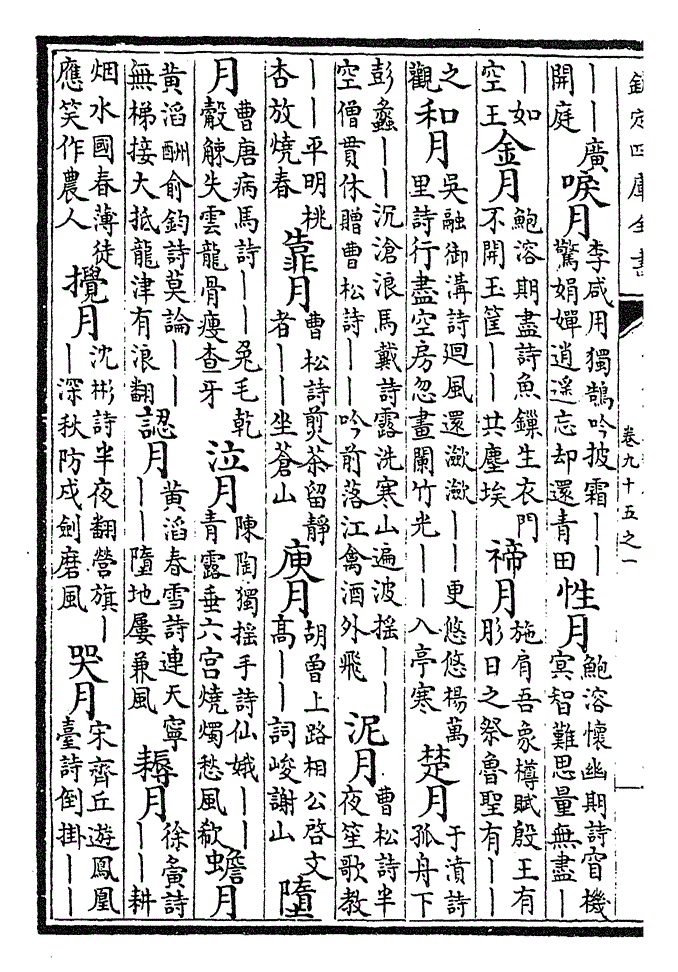 欽定四庫全書
卷九十五之一
——廣開庭 唳月 李咸用獨鵠吟披霜——驚娟嬋逍遥忘却還青田 性月 鮑溶懷幽期詩窅機冥智難思量無盡—
—如空王 金月 鮑溶期盡詩魚鏁生衣門不開王筐——共塵埃 禘月 施肩吾象樽賦殷王有肜日之祭魯聖有——
之觀 和月 吳融御溝詩迴風還瀲瀲——更悠悠楊萬里詩行盡空房忽畫闌竹光——入亭寒 楚月 于濆詩孤舟下
彭蠡——沉滄浪馬戴詩露洗寒山遍波摇——空僧貫休贈曹松詩——吟前落江禽酒外飛 泥月 曹松詩半夜笙歌教
——平明桃杏放燒春 靠月 曹松詩煎茶留靜者——坐蒼山 庾月 胡曾上路相公啓文高——詞峻謝山 墮
月 曹唐病馬詩——兔毛乾觳觫失雲龍骨瘦查牙 泣月 陳陶獨摇手詩仙娥——青露垂六宫燒燭愁風欷 蟾月
黃滔酬俞鈞詩莫論——無梯接大抵龍津有浪翻 認月 黃滔春雪詩連天寧——墮地屢兼風 耨月 徐夤詩——耕
烟水國春薄徒應笑作農人 攪月 沈彬詩半夜翻營旗——深秋防戍劍磨風 哭月 宋齊丘遊鳳凰臺詩倒掛——